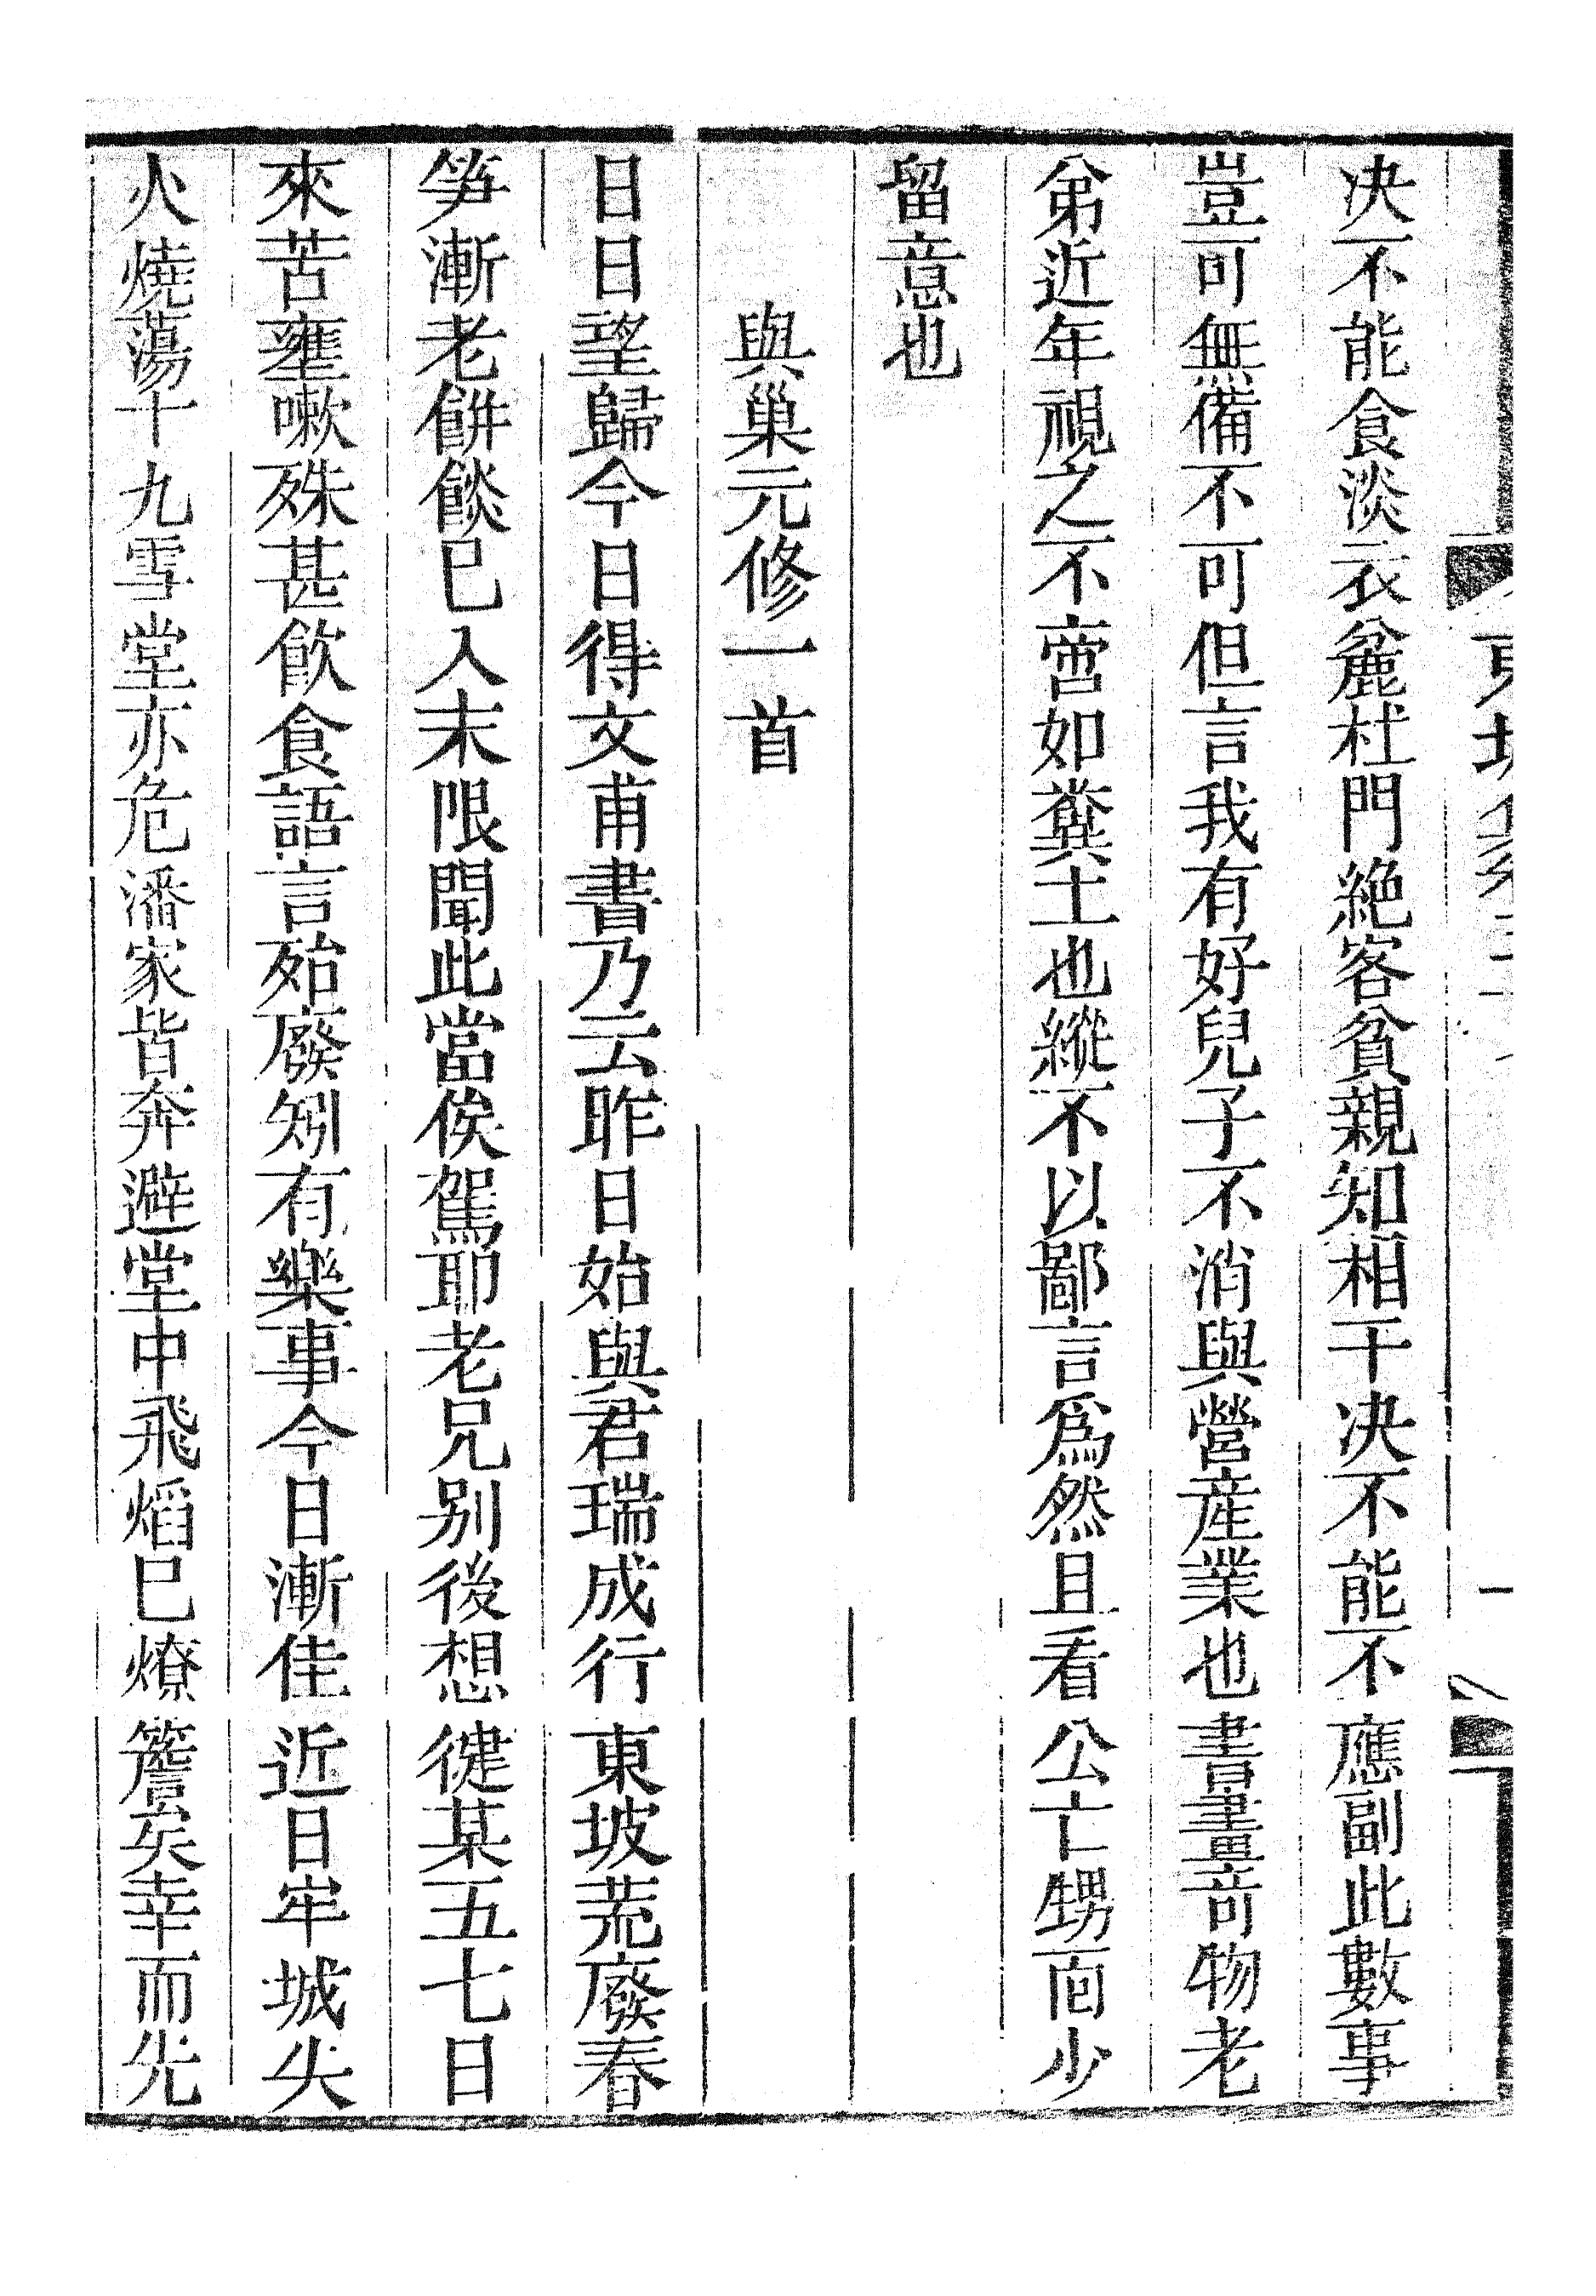 决不能食淡衣麄杜門絶客貧親知相干决不能不應副此數事
豈可無備不可但言我有好兒子不消與營產業也書畫奇物老
弟近年視之不啻如糞土也縱不以鄙言爲然且看公亡甥面少
留意也
與巢元修一首
日日望歸今日得文甫書乃云昨日始與君瑞成行東坡荒廢春
笋漸老餅餤已入末限聞此當俟駕耶老兄别後想健某五七日
來苦壅嗽殊甚飲食語言殆廢矧有樂事今日漸佳近日牢城失
火燒蕩十九雪堂亦危潘家皆奔避堂中飛熖已燎簷矣幸而先